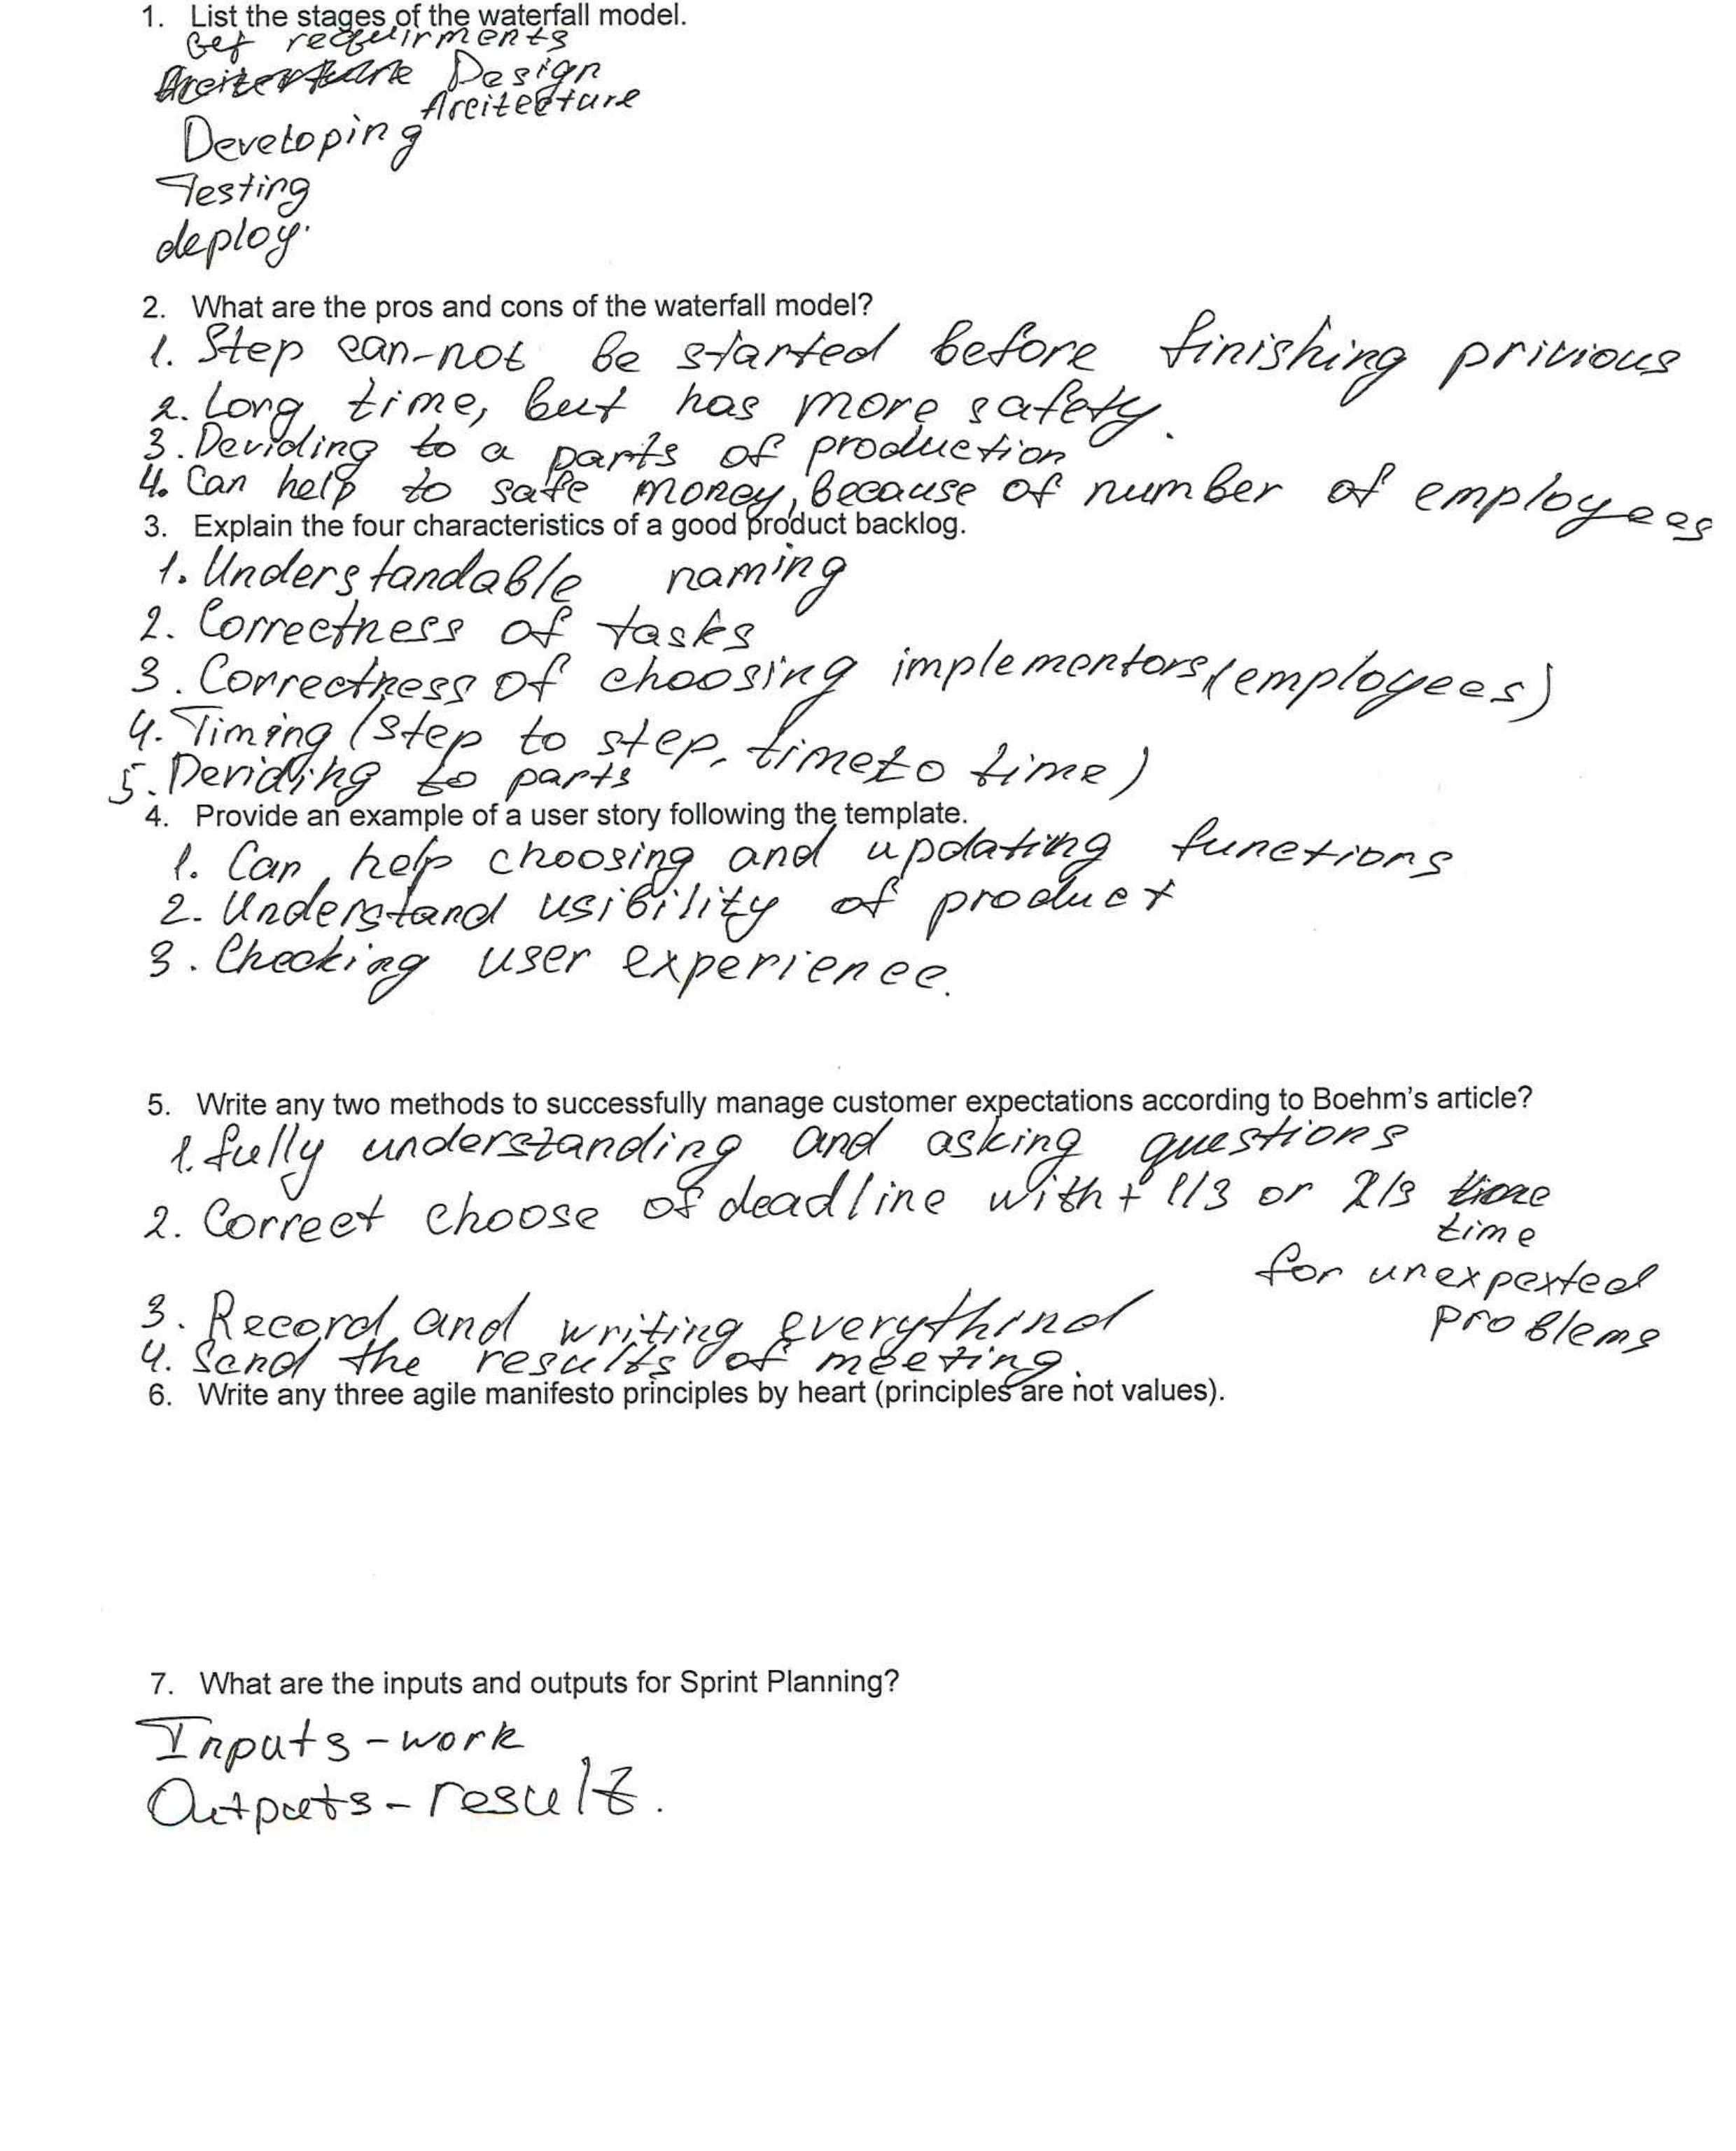 1. List the stages of the waterfall model.
Get requirments
Design
Arcitecture
Developing
Testing
deploy.
2. What are the pros and cons of the waterfall model?
1. Step can-not be started before finishing privious
2. Long time, but has more safety.
3. Deviding to a parts of production
4. Can help to safe money, because of number of employees
3. Explain the four characteristics of a good product backlog.
1. Understandable naming
2. Correctness of tasks
3. Correctness of choosing implementors (employees)
4. Timing (step to step, time to time)
5. Deviding to parts
4. Provide an example of a user story following the template.
1. Can help choosing and updating functions
2. Understand usibility of product
3. Checking user experience.
5. Write any two methods to successfully manage customer expectations according to Boehm's article?
1. fully understanding and asking questions
2. Correct choose of deadline with + 1/3 or 2/3
time
for unexpexted
problems
3. Record and writing everythind
4. Send the results of meeting.
6. Write any three agile manifesto principles by heart (principles are not values).
7. What are the inputs and outputs for Sprint Planning?
Inputs - work
Outputs - result.